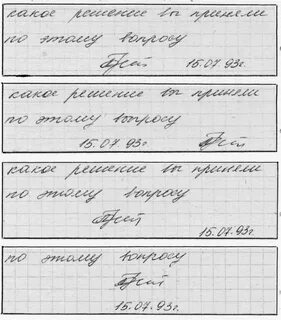 какое решение вы приняли
по этому вопросу
15.07.93г.
какое решение вы приняли
по этому вопросу
15.07.93г.
какое решение вы приняли
по этому вопросу
15.07.93г.
по этому вопросу
15.07.93г.